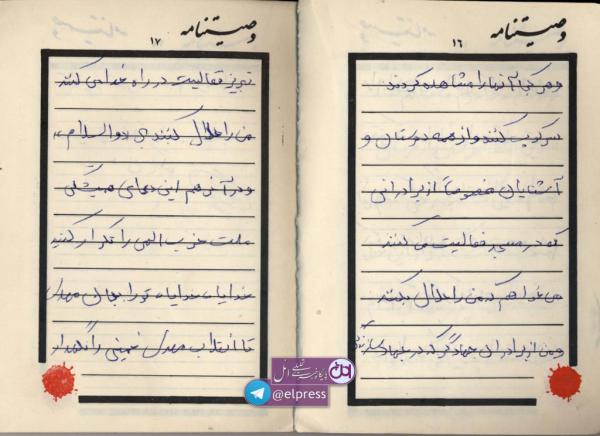 وصیتنامه
۱۶
و هر کجا آنها را مشاهده کردند
سرکوب کنند و از همه دوستان و
آشنایان خصوصاً از برادرانی
که در مسجد فعالیت می کنند
می خواهم که من را حلال بکنند
و من از برادران جهادگر که در جهاد سازندگی
وصیتنامه
۱۷
تبریز فعالیت در راه خدا می کنند
من را حلال کنند والسلام
و در آخر هم این دعای همیشگی
ملت حزب الهی را تکرار کنید
خدایا خدایا تو را بجان مهدی
تا انقلاب مهدی خمینی را نگهدار
پایگاه خبری تحلیلی ائل
@elpress